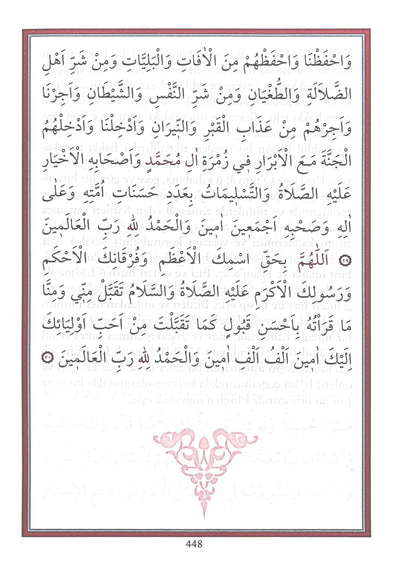 وَاحْفَظْنَا وَاحْفَظْهُمْ مِنَ الْاٰفَاتِ وَالْبَلِيَّاتِ وَمِنْ شَرِّ اَهْلِ
الضَّلَالَةِ وَالطُّغْيَانِ وَمِنْ شَرِّ النَّفْسِ وَالشَّيْطَانِ وَاَجِرْنَا
وَاَجِرْهُمْ مِنْ عَذَابِ الْقَبْرِ وَالنّ۪يرَانِ وَاَدْخِلْنَا وَاَدْخِلْهُمُ
الْجَنَّةَ مَعَ الْاَبْرَارِ ف۪ي زُمْرَةِ اٰلِ مُحَمَّدٍ وَاَصْحَابِهِ الْاَخْيَارِ
عَلَيْهِ الصَّلَاةُ وَالتَّسْل۪يمَاتُ بِعَدَدِ حَسَنَاتِ اُمَّتِه۪ وَعَلٰى
اٰلِه۪ وَصَحْبِه۪ٓ اَجْمَع۪ينَ اٰم۪ينَ وَالْحَمْدُ لِلّٰهِ رَبِّ الْعَالَم۪ينَ
اَللّٰهُمَّ بِحَقِّ اسْمِكَ الْاَعْظَمِ وَفُرْقَانِكَ الْاَحْكَمِ
وَرَسُولِكَ الْاَكْرَمِ عَلَيْهِ الصَّلَاةُ وَالسَّلَامُ تَقَبَّلْ مِنّ۪ي وَمِنَّا
مَا قَرَاْتُهُ بِاَحْسَنِ قَبُولٍ كَمَا تَقَبَّلْتَ مِنْ اَحَبِّ اَوْلِيَائِكَ
اِلَيْكَ اٰم۪ينَ اَلْفُ اَلْفِ اٰم۪ينَ وَالْحَمْدُ لِلّٰهِ رَبِّ الْعَالَم۪ينَ
448